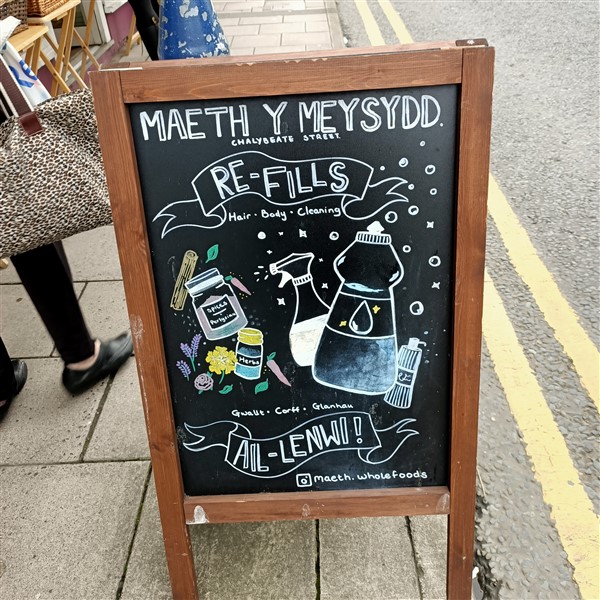 MAETH Y MEYSYDD.
CHALYBEATE STREET.
RE-FILLS
Hair • Body • Cleaning
Spice
Perlysiau
Herbs
Gwallt • Corff • Glanhau
AIL-LENWI!
maeth.wholefoods